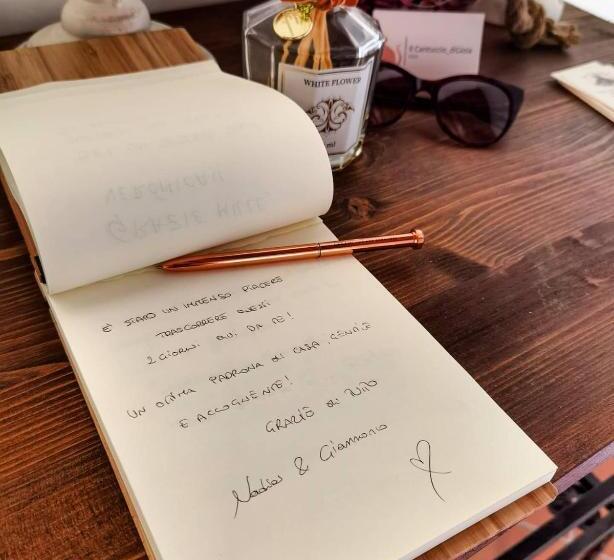 WHITE FLOWER
ml
Il Cantuccio_diGioia
È STATO UN IMMENSO PIACERE
TRASCORRERE QUESTI
2 GIORNI QUI DA TE!
UN OTTIMA PADRONA DI CASA, GENTILE
E ACCOGLIENTE!
GRAZIE DI TUTTO
Nadia & Giannunzio